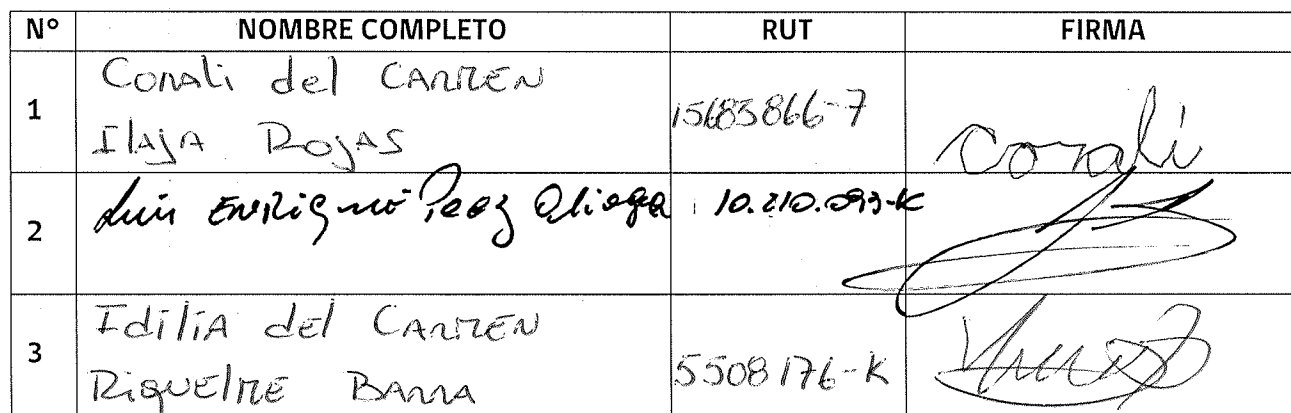 N° NOMBRE COMPLETO RUT FIRMA
1 Corali del CARMEN
Ilaja ROJAS 15683866-7 corali
2 Luis ENRique Perez Aliaga 10.210.093-K
3 Idilia del CARMEN
RiquelME BARRA 5508176-K